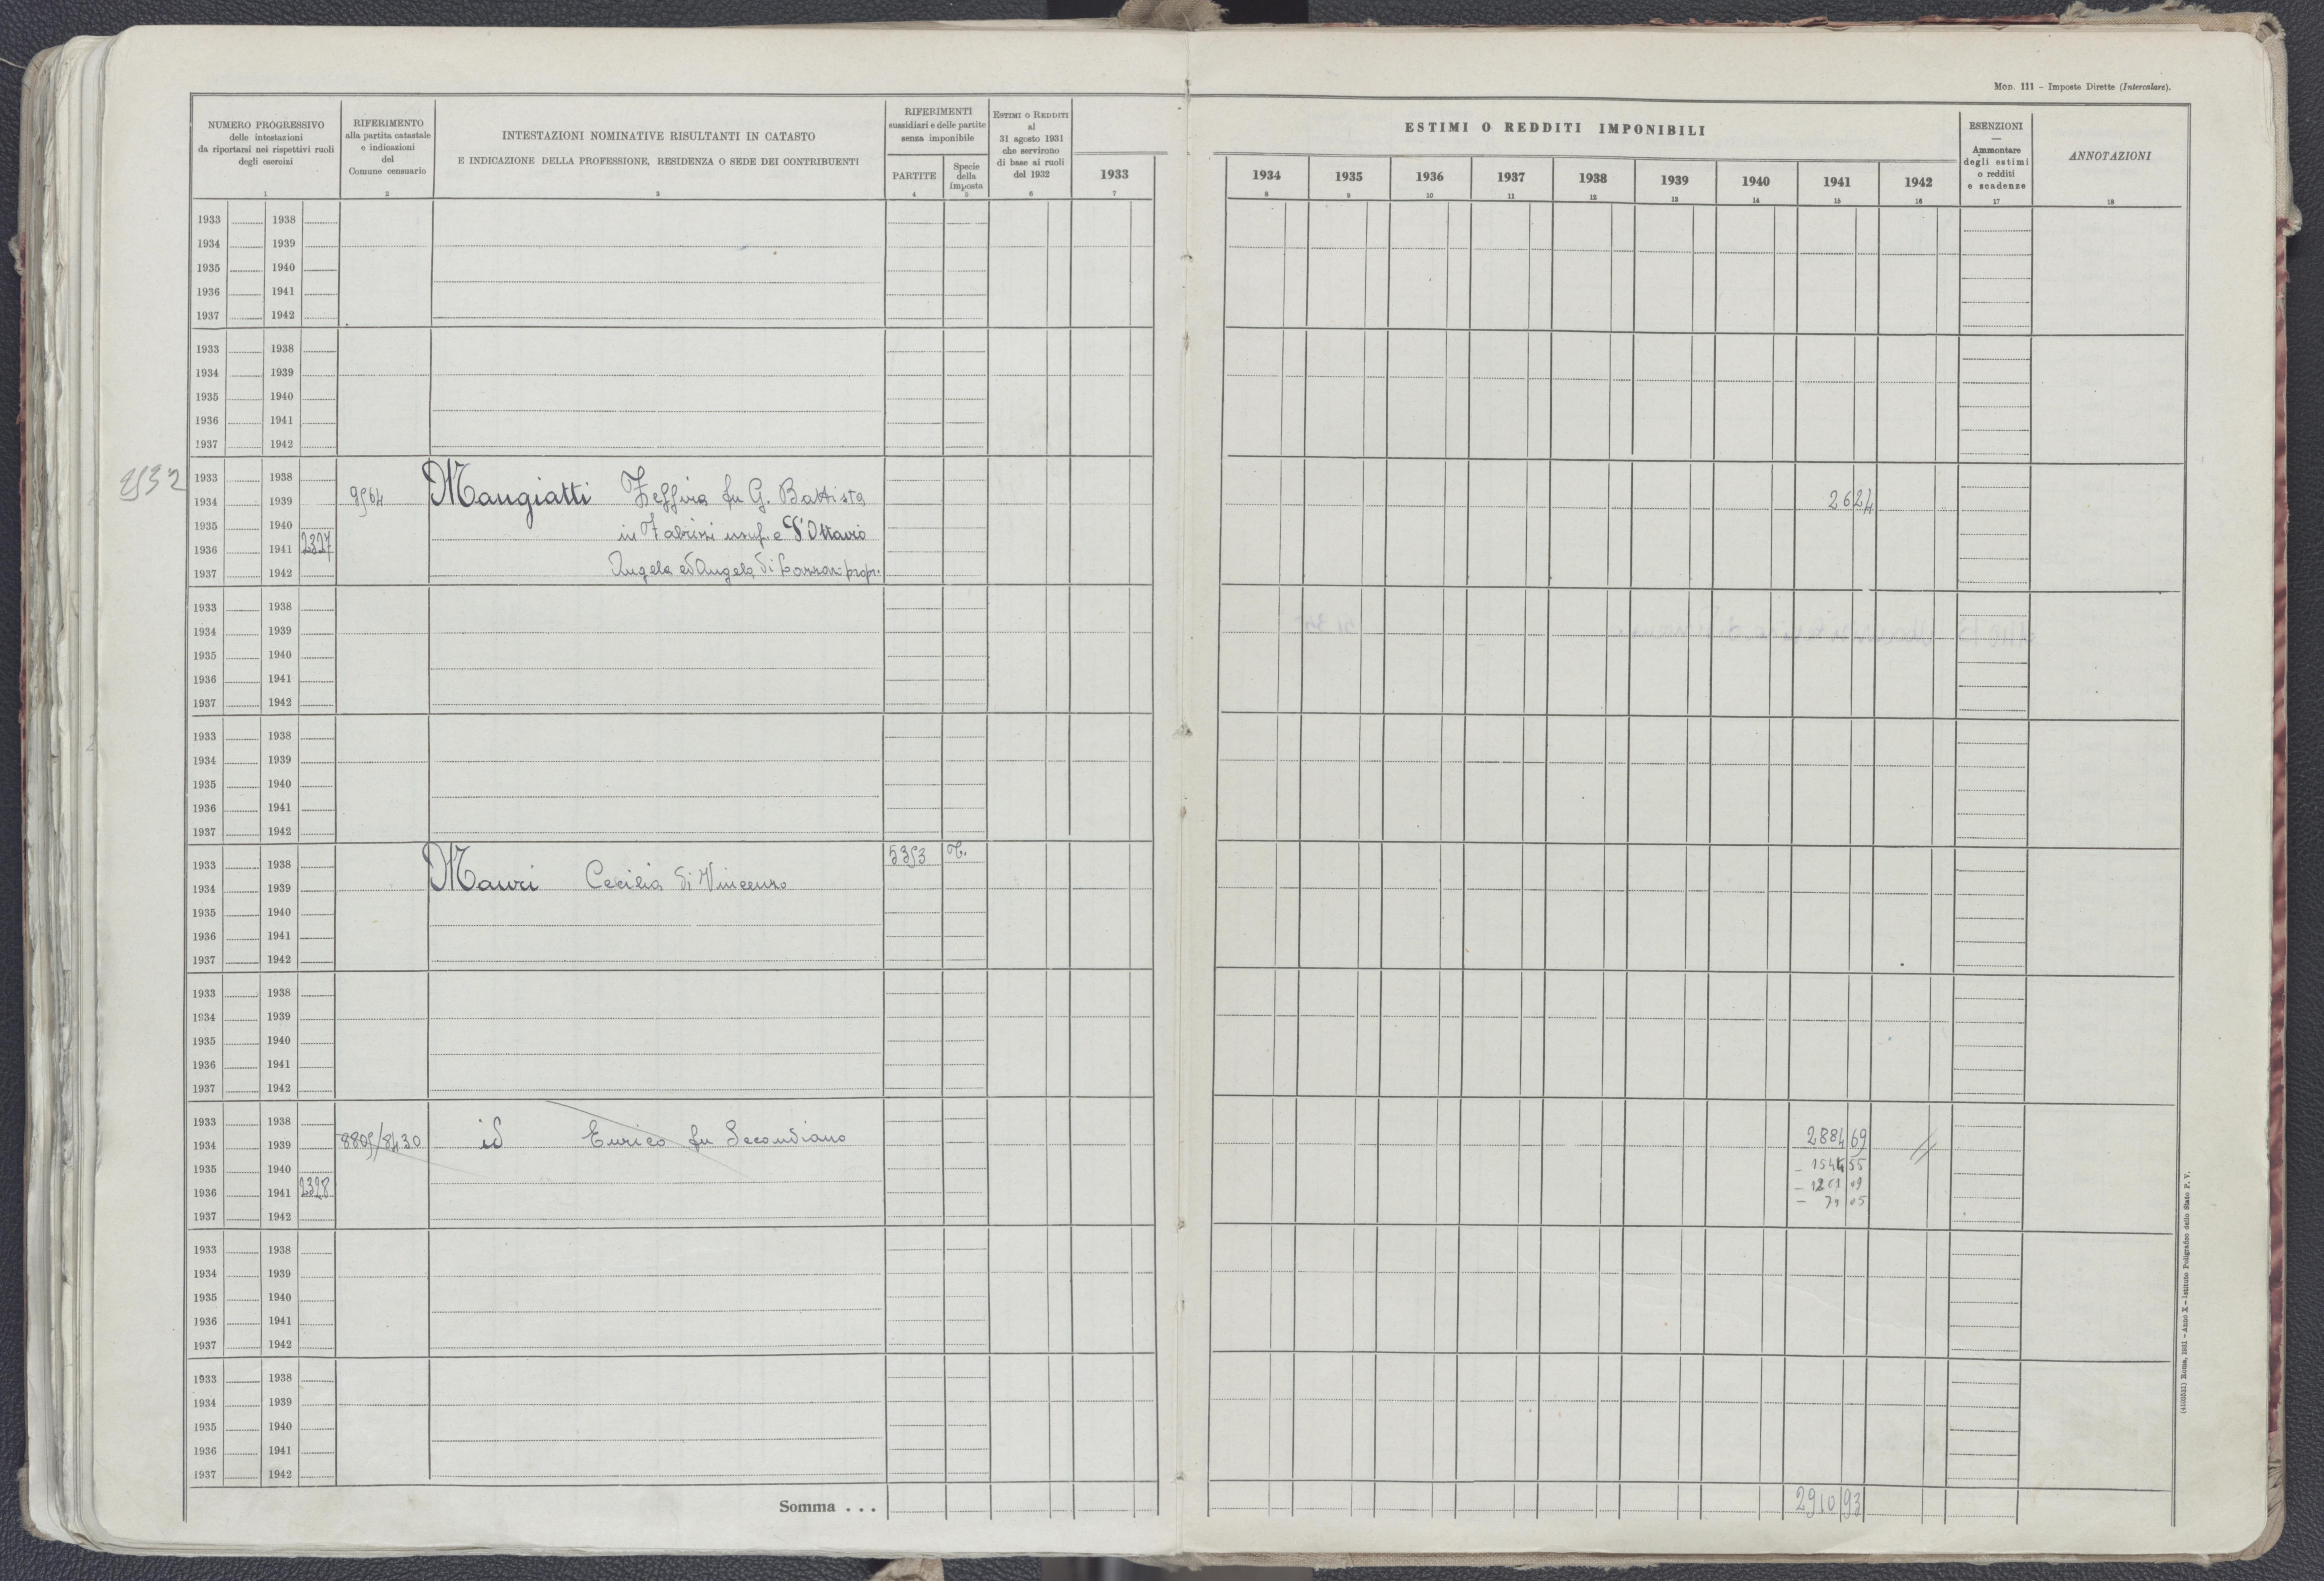 MOD. 111 – Imposte Dirette (Intercalare).
NUMERO PROGRESSIVO
delle intestazioni
da riportarsi nei rispettivi ruoli
degli esercizi
1
RIFERIMENTO
alla partita catastale
e indicazioni
del
Comune censuario
2
INTESTAZIONI NOMINATIVE RISULTANTI IN CATASTO
E INDICAZIONE DELLA PROFESSIONE, RESIDENZA O SEDE DEI CONTRIBUENTI
3
RIFERIMENTI
sussidiari e delle partite
senza imponibile
PARTITE
4
Specie
della
imposta
5
ESTIMI O REDDITI
al
31 agosto 1931
che servirono
di base ai ruoli
del 1932
6
1933
7
ESTIMI O REDDITI IMPONIBILI
1934 1935 1936 1937 1938 1939 1940 1941 1942
8 9 10 11 12 13 14 15 16
ESENZIONI
—
Ammontare
degli estimi
o redditi
e scadenze
17
ANNOTAZIONI
18
1933 1938
1934 1939
1935 1940
1936 1941
1937 1942
1933 1938
1934 1939
1935 1940
1936 1941
1937 1942
1933 1938
1934 1939 9564 Mangiatti Zeffira fu G. Battista 26 24
1935 1940 in Fabrizi usuf. e D'Ottavio
1936 1941 2327
1937 1942 Angela ed Angelo di propr.
1933 1938
1934 1939
1935 1940
1936 1941
1937 1942
1933 1938
1934 1939
1935 1940
1936 1941
1937 1942
1933 1938 5353 T.
1934 1939 Mauri Cecilia di Vincenzo
1935 1940
1936 1941
1937 1942
1933 1938
1934 1939
1935 1940
1936 1941
1937 1942
1933 1938
1934 1939 8805/8430 id Enrico fu Secondiano 2884 69 //
1935 1940 – 1544 55
1936 1941 2328 – 1261 09
1937 1942 – 79 05
1933 1938
1934 1939
1935 1940
1936 1941
1937 1942
1933 1938
1934 1939
1935 1940
1936 1941
1937 1942
Somma . . . 2910 93
(4103531) Roma, 1931 – Anno X – Istituto Poligrafico dello Stato P. V.